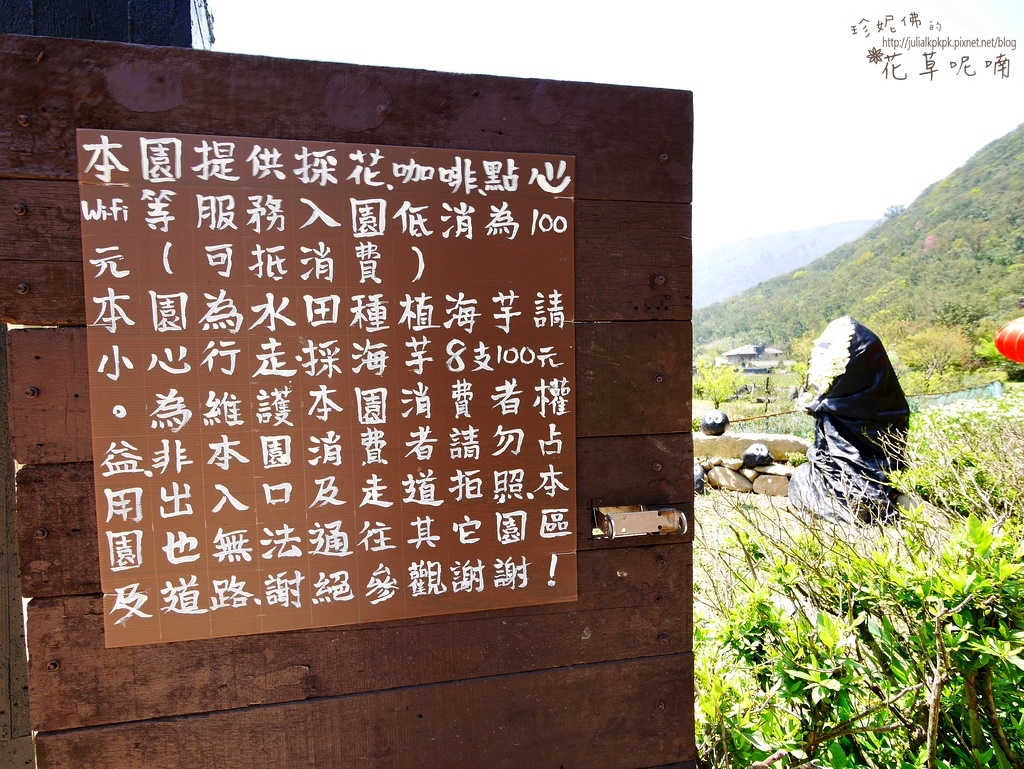 珍妮佛的
http://julialkpkpk.pixnet.net/blog
花草呢喃
本園提供採花、咖啡、點心
Wi-Fi等服務入園低消為100
元(可抵消費)
本園為水田種植海芋請
小心行走採海芋8支100元
。為維護本園消費者權
益、非本園消費者請勿占
用出入口及走道拍照、本
園也無法通往其它園區
及道路、謝絕參觀謝謝!